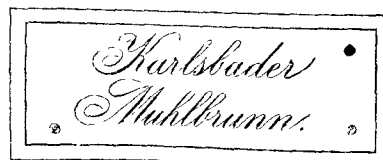 Karlsbader
Muhlbrunn.